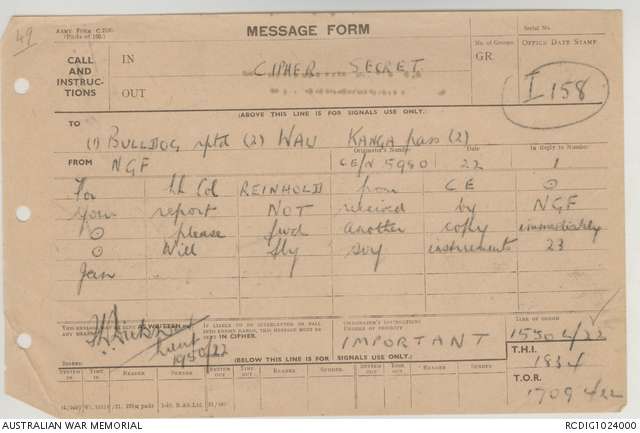 49
ARMY FORM C.2136
(Pads of 100.)
MESSAGE FORM
Serial No.
CALL AND INSTRUCTIONS
IN
OUT
CIPHER SECRET
No. of Groups
GR.
OFFICE DATE STAMP
I 158
(ABOVE THIS LINE IS FOR SIGNALS USE ONLY.)
TO
(1) BULLDOG rptd (2) WAU KANGA pass (2)
FROM
NGF
Originator's Number
CE/N 5980
Date
22
In Reply to Number
1
For Lt Col REINHOLD from CE ⊙
your report NOT received by NGF
⊙ please fwd another copy immediately
⊙ Will fly svy instruments 23
Jan
THIS MESSAGE MAY BE SENT AS WRITTEN
IF LIABLE TO BE INTERCEPTED OR FALL INTO ENEMY HANDS, THIS MESSAGE MUST BE SENT IN CIPHER.
ORIGINATOR'S INSTRUCTIONS
DEGREE OF PRIORITY
IMPORTANT
TIME OF ORIGIN
1550 L/22
Lieut
1950/22
SIGNED
(BELOW THIS LINE IS FOR SIGNALS USE ONLY.)
T.H.I.
1834
SYSTEM IN
TIME IN
READER
SENDER
SYSTEM OUT
TIME OUT
READER
SENDER
SYSTEM OUT
TIME OUT
READER
SENDER
T.O.R.
AUSTRALIAN WAR MEMORIAL
RCDIG1024000